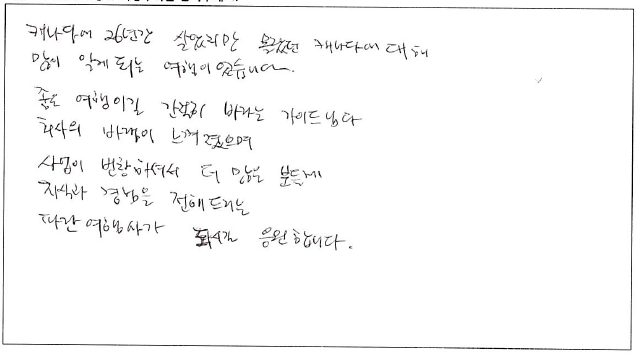 캐나다에 26년간 살았지만 몰랐던 캐나다에 대해
많이 알게 되는 여행이었습니다.
좋은 여행이길 간절히 바라는 가이드님과
회사의 바램이 느껴졌으며
사업이 번창하셔서 더 많은 분들께
지식과 경험을 전해드리는
파란여행사가 되시길 응원합니다.